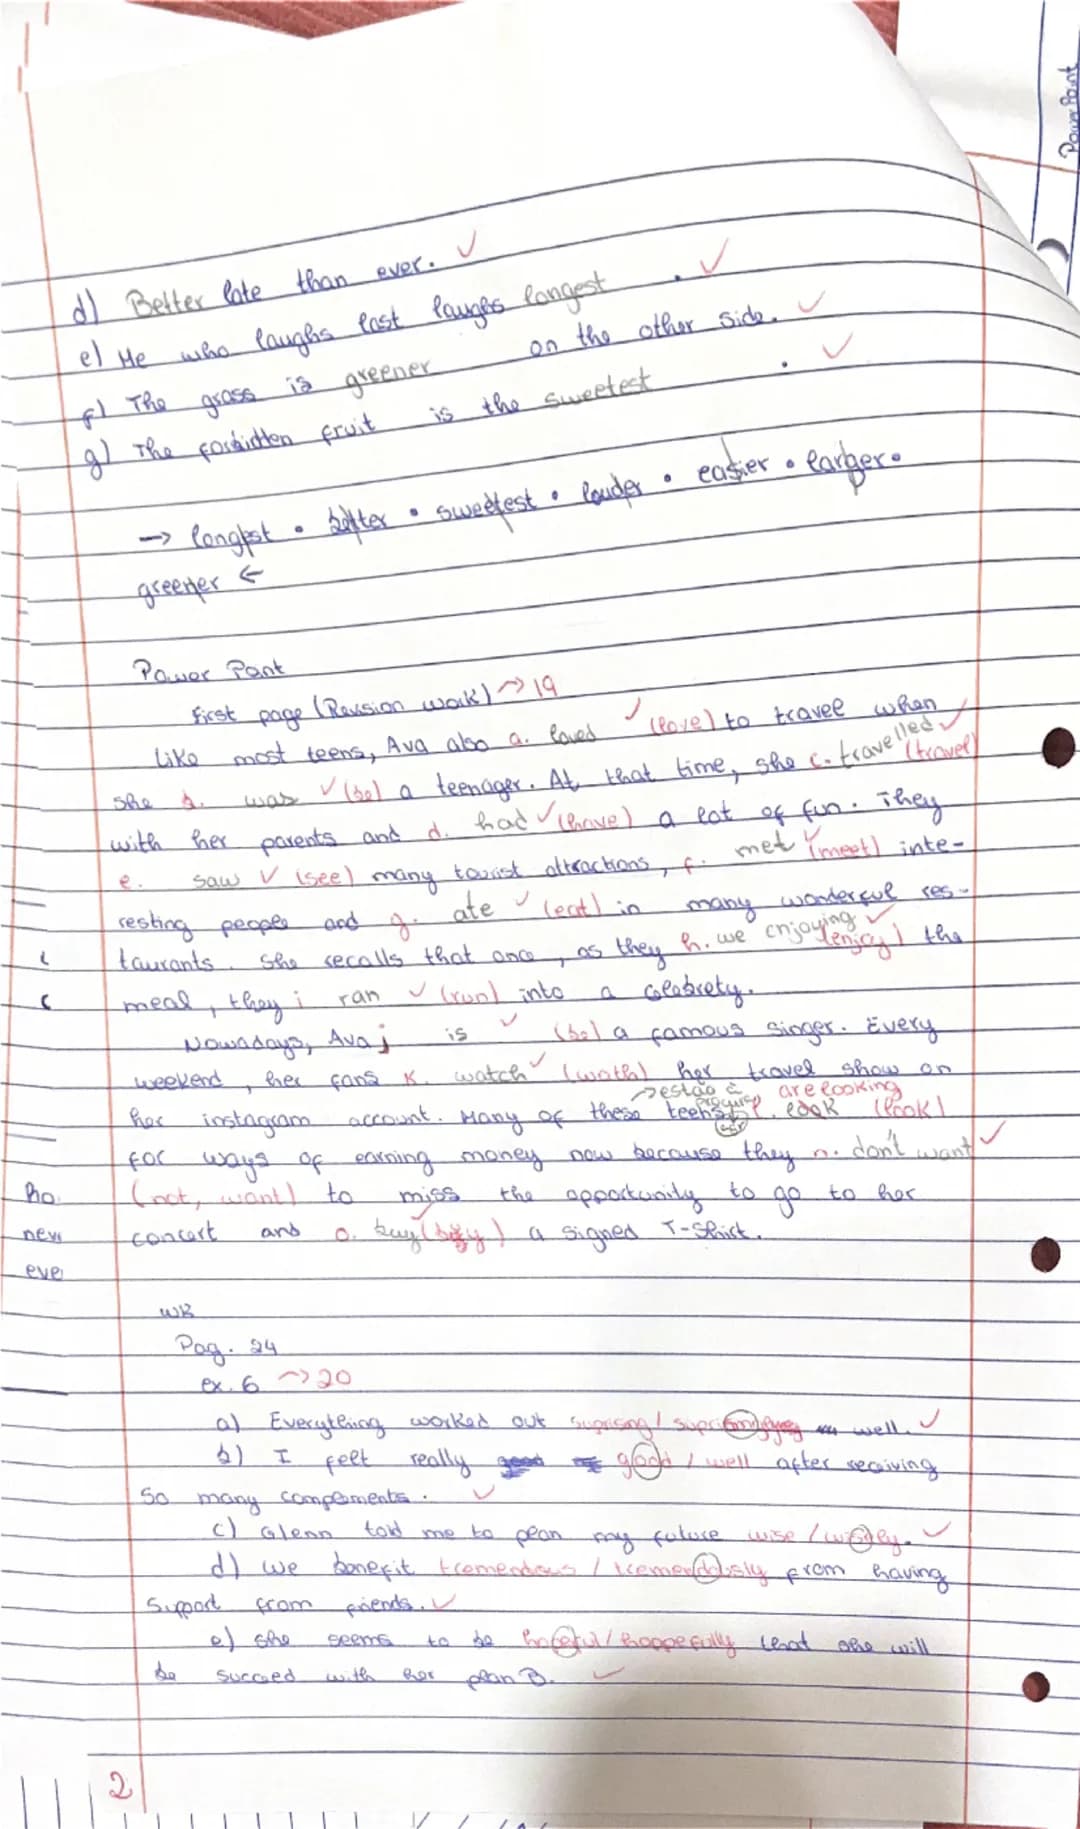 Power Point
d) Better late than ever. ✓
e) He who laughs last laughs longest . ✓
f) The grass is greener on the other side. ✓
g) The forbidten fruit is the sweetest . ✓
→ longest • better • sweetest • louder • easier • larger •
greener ←
Power Pont
First page (Revision work) → 19
Like most teens, Ava also a. loved ✓ (love) to travel when
she b. was ✓ (be) a teenager. At that time, she c. travelled ✓ (travel)
with her parents and d. had ✓ (have) a lot of fun. They
e. saw ✓ (see) many tourist attractions, f. met (meet) inte-
resting people and g. ate ✓ (eat) in many wonderful res-
taurants. She recalls that once, as they h. we enjoying ✓ (enjoy) the
meal, they i ran ✓ (run) into a celebrety.
Nowadays, Ava j is ✓ (be) a famous singer. Every
weekend, her fans K. watch ✓ (wath) her travel show on
→ estão à are looking
her instagram account. Many of these teens l. look (look)
for ways of earning money now because they n. don't want ✓
(not, want) to miss the opportunity to go to her
concert and o. buy (buy) a signed T-Shirt.
ho
new
eve
WB
Pag. 24
ex. 6 → 20
a) Everything worked out suprising / well. ✓
b) I felt really good / well after receiving
so many compements. ✓
c) Glenn told me to plan my future wise / wisely. ✓
d) We benefit tremendous / tremendously from having
Support from friends. ✓
e) she seems to be hopeful / hoppefully that she will
be succeed with her plan B. ✓
2